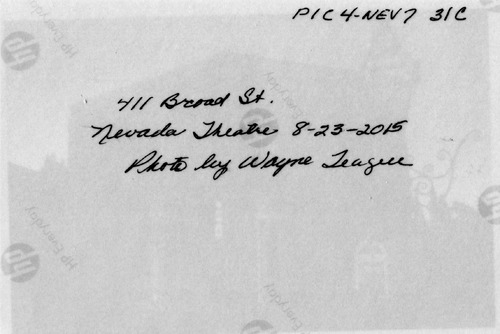 PIC 4-NEV 7 31C
411 Broad St.
Nevada Theatre 8-23-2015
Photo by Wayne Teague
hp HP Everyday
hp HP Everyday
hp HP Everyday
hp HP Everyday